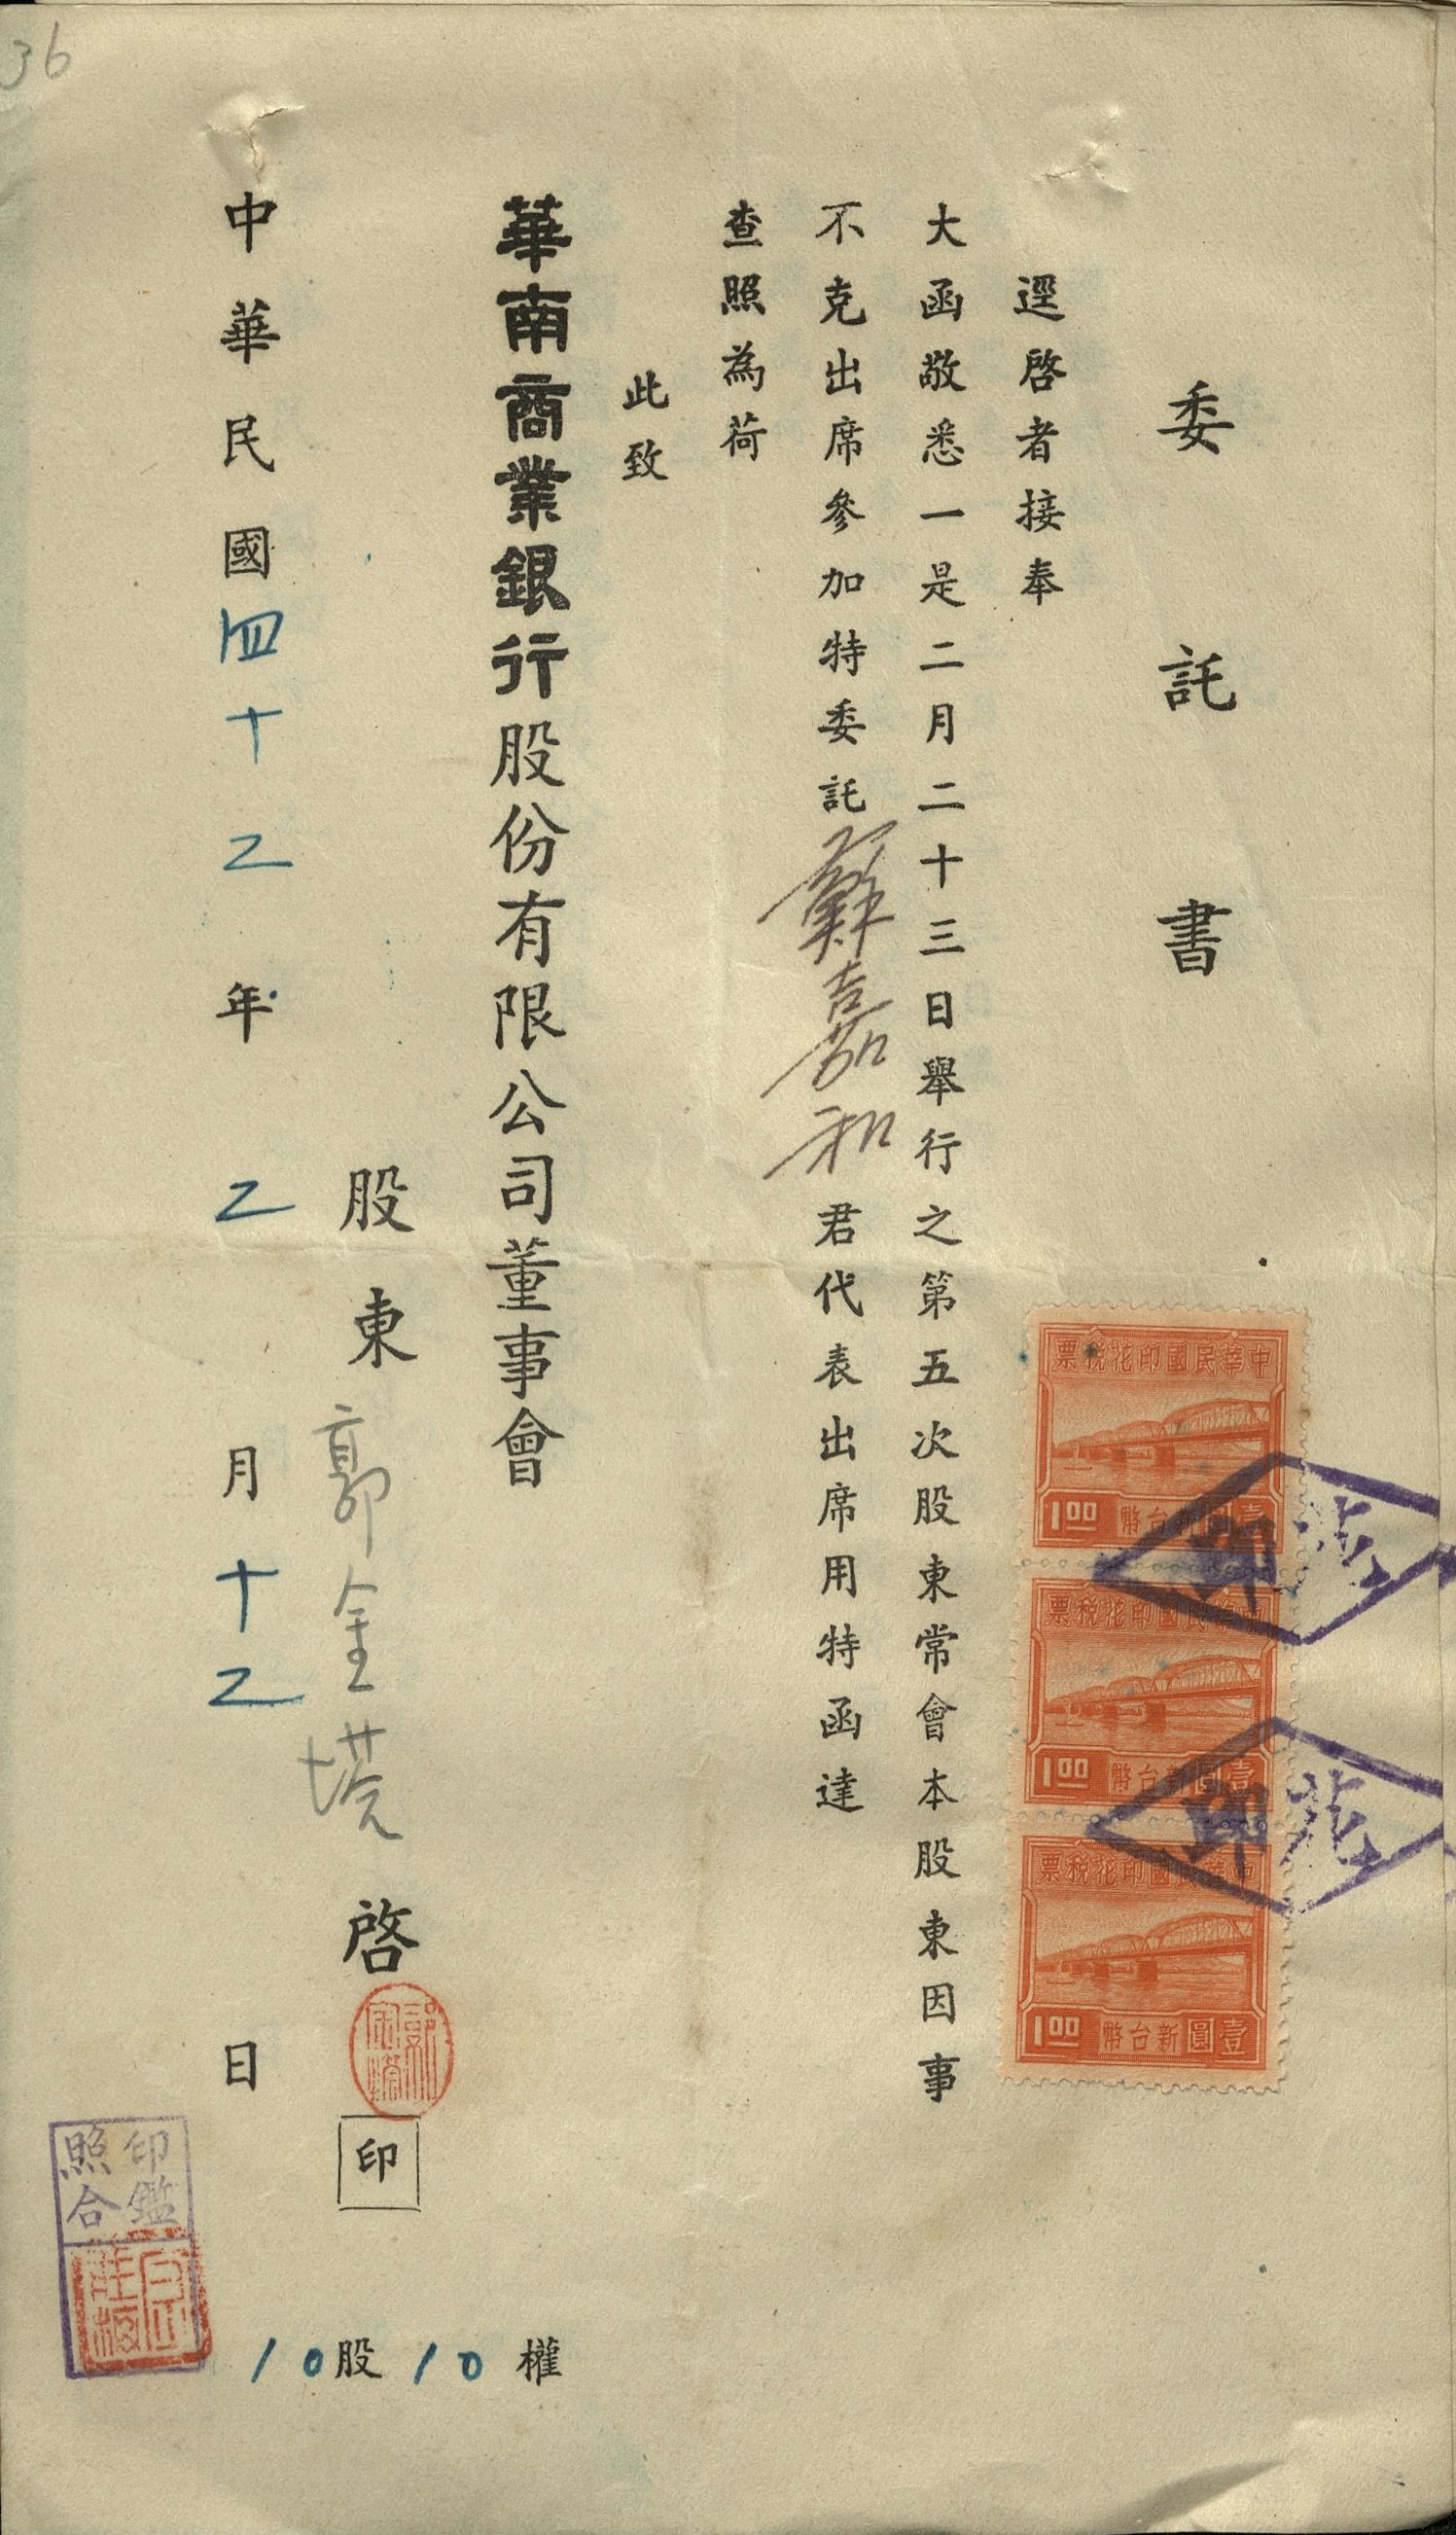 36
委託書
逕啓者接奉
大函敬悉一是二月二十三日舉行之第五次股東常會本股東因事
不克出席參加特委託蘇嘉和君代表出席用特函達
查照為荷
此致
華南商業銀行股份有限公司董事會
股東郭金塔啓
印
中華民國四十乙年乙月十乙日
10股10權
中華民國印花稅票
1.00 壹圓新台幣
中華民國印花稅票
1.00 壹圓新台幣
中華民國印花稅票
1.00 壹圓新台幣
印花
印花
郭金塔
印鑑
照合